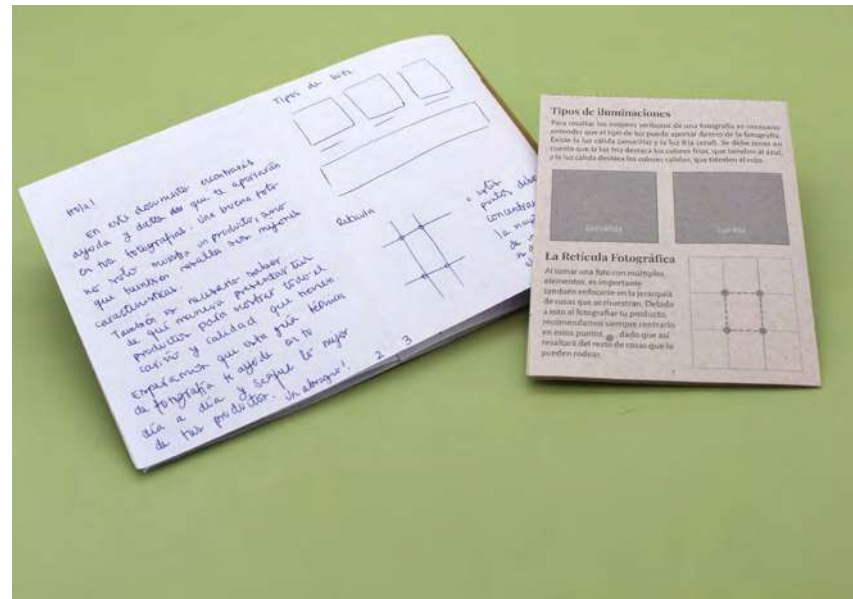 Hola!
En este documento encontrarás
ayuda y datos que te aportarán
en tus fotografías. Una buena foto
no solo muestra un producto, sino
que también resalta sus mejores
características.
También es necesario saber
de qué manera presentar tus
productos para mostrar todo el
cariño y calidad que tienen
Esperamos que esta guía
de fotografía te ayude en tu
día a día y saque lo mejor
de tus productos. Un abrazo!
2 3
Tipos de luz
Retícula
puntos
la
Tipos de iluminaciones
Para resaltar los mejores atributos de una fotografía es necesario
entender que el tipo de luz puede aportar dentro de la fotografía.
Existe la luz cálida (amarilla) y la luz fría (azul). Se debe tener en
cuenta que la luz fría destaca los colores fríos, que tienden al azul,
y la luz cálida destaca los colores cálidos, que tienden al rojo.
Luz cálida
Luz fría
La Retícula Fotográfica
Al tomar una foto con múltiples
elementos, es importante
también enfocarse en la jerarquía
de cosas que se muestran. Debido
a esto al fotografiar tu producto,
recomendamos siempre centrarlo
en estos puntos , dado que así
resaltará del resto de cosas que lo
pueden rodear.